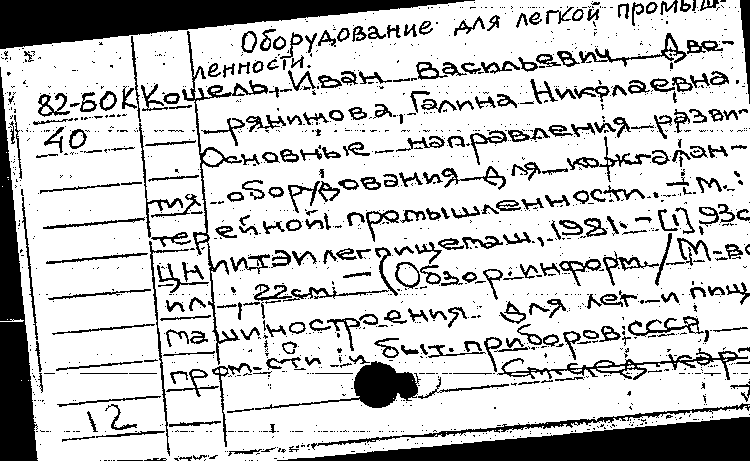 Оборудование для легкой промыш-
ленности.
82-БОК Кошель, Иван Васильевич, Дво-
40 рянинова, Галина Николаевна.
Основные направления разви-
тия оборудования для кожгалан-
терейной промышленности. – М.:
ЦНИИТЭИлегпищемаш, 1981. – [1], 93с.
ил.; 22см. – (Обзор. информ. / М-во
машиностроения для лег. и пищ.
пром-сти и быт. приборов СССР,
См. след. карт
12